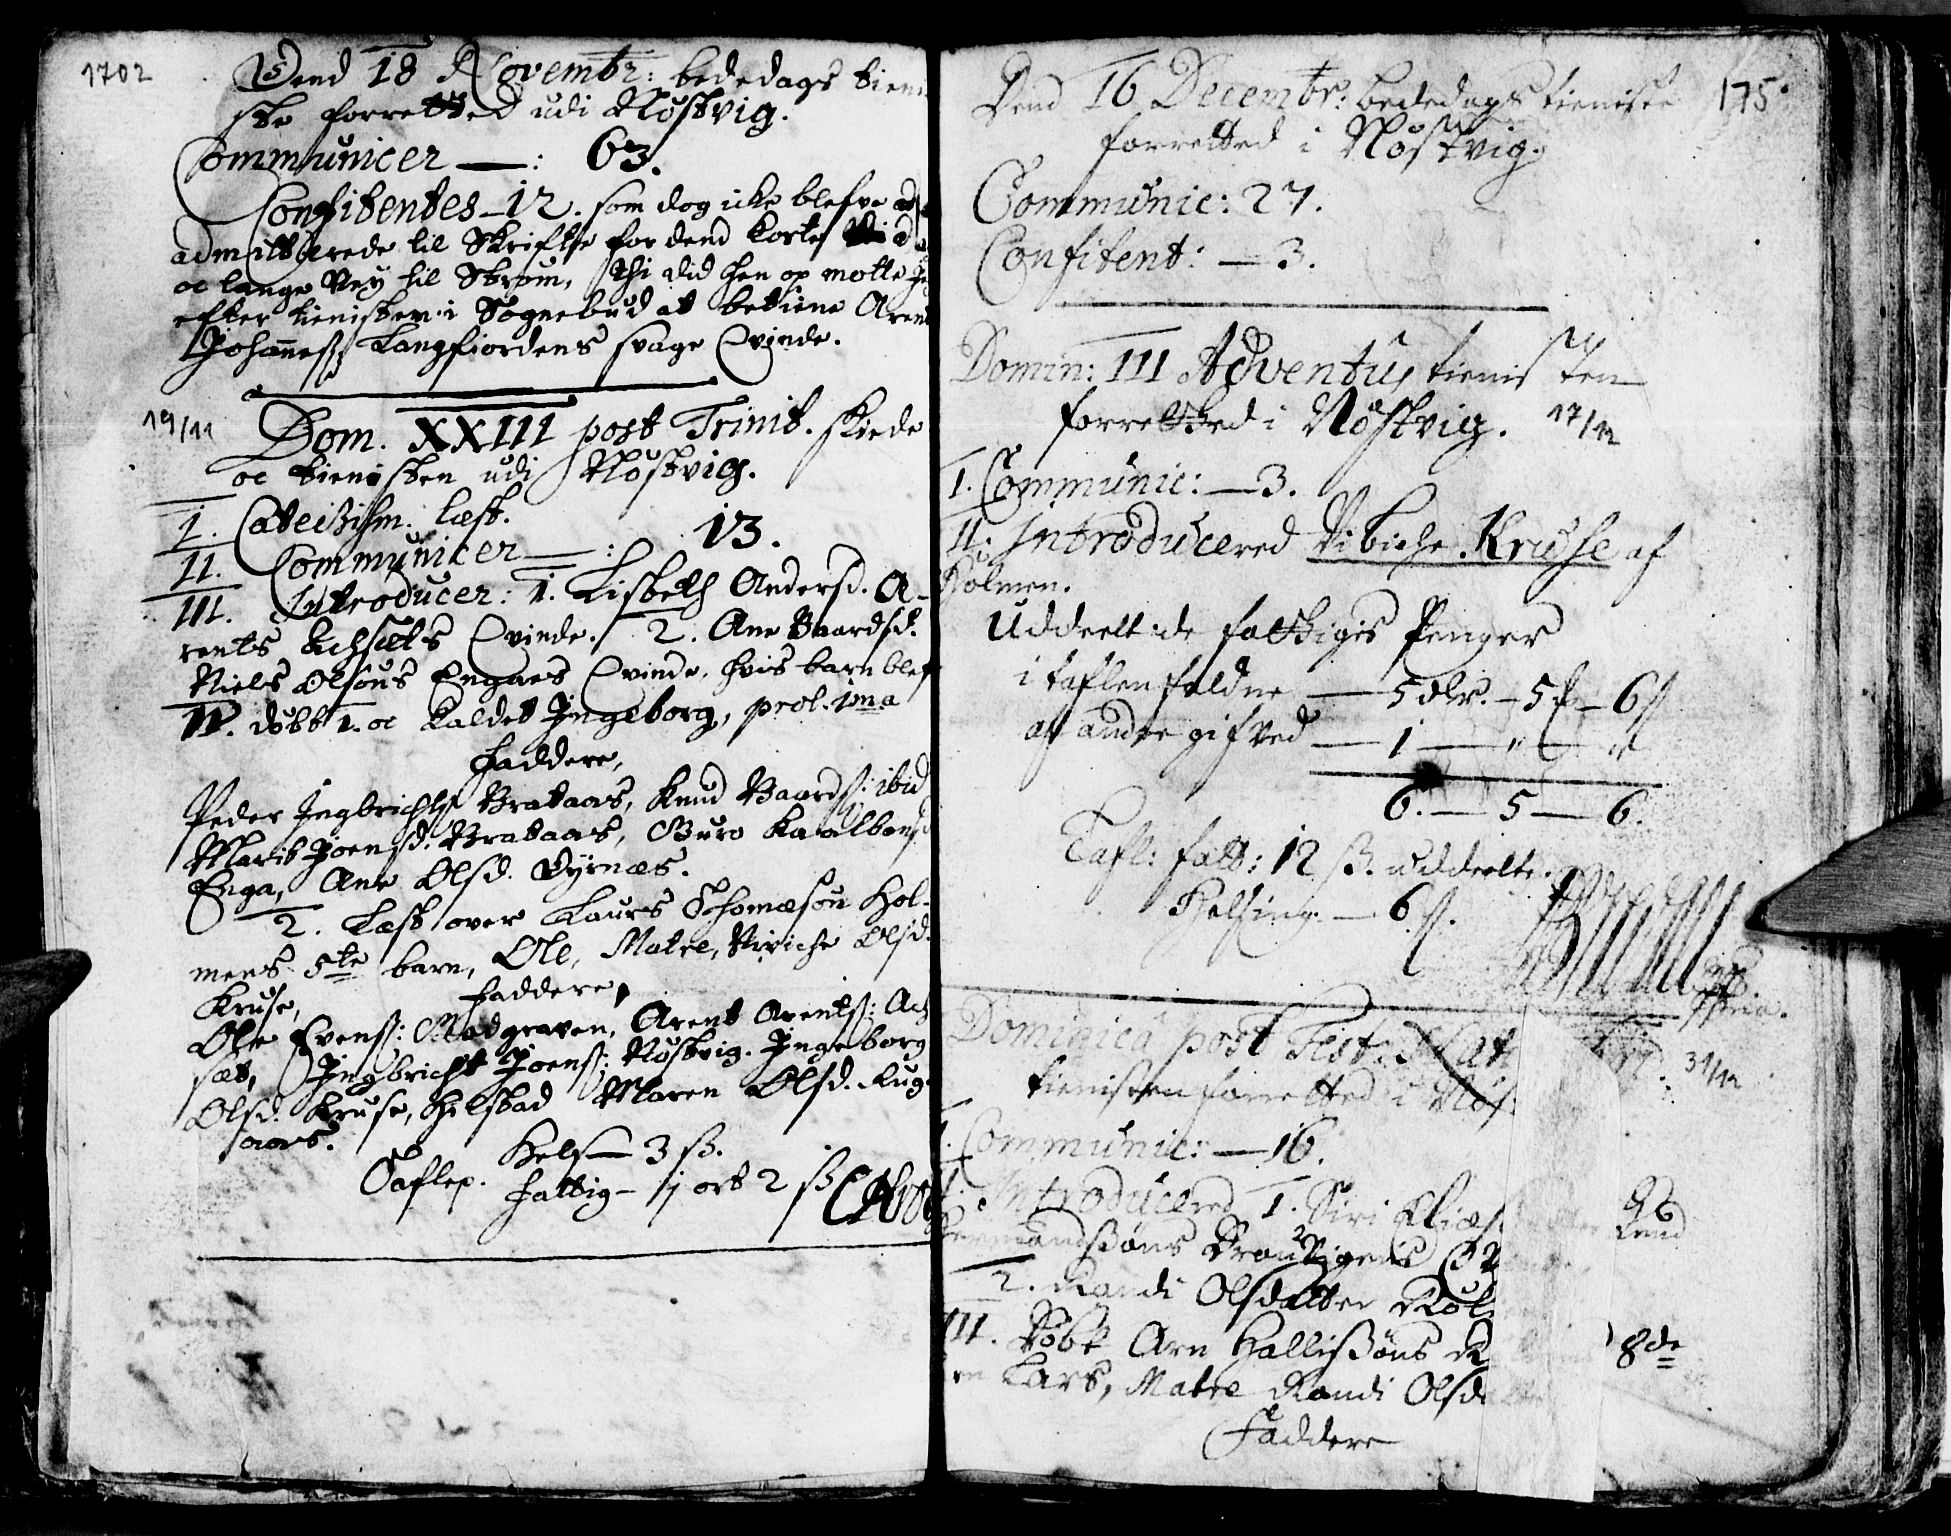 1702
Dend 18 Novembr: bededags tieni
ste forretted udi Nøstvig.
Communicer — : 63.
Confitentes - 12. som dog icke blefve
admitterede til Skrifte for dend korte
oc lange Vey til Strøm, thi alid hen op motte
efter tienisten i Sognebud at betiene Arent
Johanness Langfiordens svage Qvinde.
19/11
Dom. XXIII post Trinit. skiede
oc tienisten udi Nøstvig.
I. Catechism. læst.
II. Communicer — : 13.
III. Introducer: 1. Lisbeth Andersd. A-
rents Achsæts Qvinde. 2. Ane Baardsd.
Niels Olsøns Engaes Qvinde, hvis barn blef
IV. døbt 1. oc kaldet Ingeborg, prol. ima
Faddere,
Peder Ingbrichts Brataas, Knud Baards: ibid
Marit Joensd. Brataas, Guro
Enga, Ane Olsd. Dyrnæs.
2. Læst over Laurs Thomæsøn Hol-
mens 5te barn, Ole, Matre, Viviche Olsd.
Kruse,
Faddere,
Ole Evens: Modgraven, Arent Arents: Ach
sæt, Ingbricht Joens: Nøstvig. Ingeborg
Olsd. Kruse, Hilstad Maren Olsd. Rug-
aars.
Hels — 3 ß.
Taflep. Fattig - 1 ort 2 ß
Dend 16 Decembr: bededags tieniste 175
forretted i Nøstvig.
Communic: 27.
Confitent: — 3.
Domin: III Adventus tienisten
forretted i Nøstvig. 17/12
I. Communic: — 3.
II. Introducered Vibiche Kruse af
Holmen.
Uddeelt de fattigis Penger
i taflen faldne — 5 dlr. - 5 - 6 ß
af andre gifved — 1 — " — "
6. — 5 — 6.
Tafl: fatt: 12 ß. uddeelte.
Helsing. — 6 ß.
Dominica post Fest: Nat
31/12
tienisten forretted i Nøs
I. Communic: — 16.
II. Introducered 1. Siri
Qvi
2. Randi Olsdatter
III. Døbt Arn Hallissøns
8de
en Lars, Matre Randi Olsd
Faddere